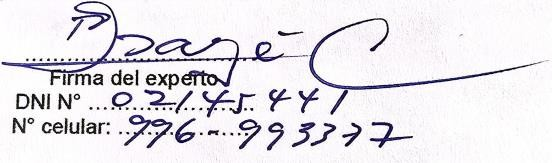 Firma del experto
DNI N° 02145441
N° celular: 996-993377